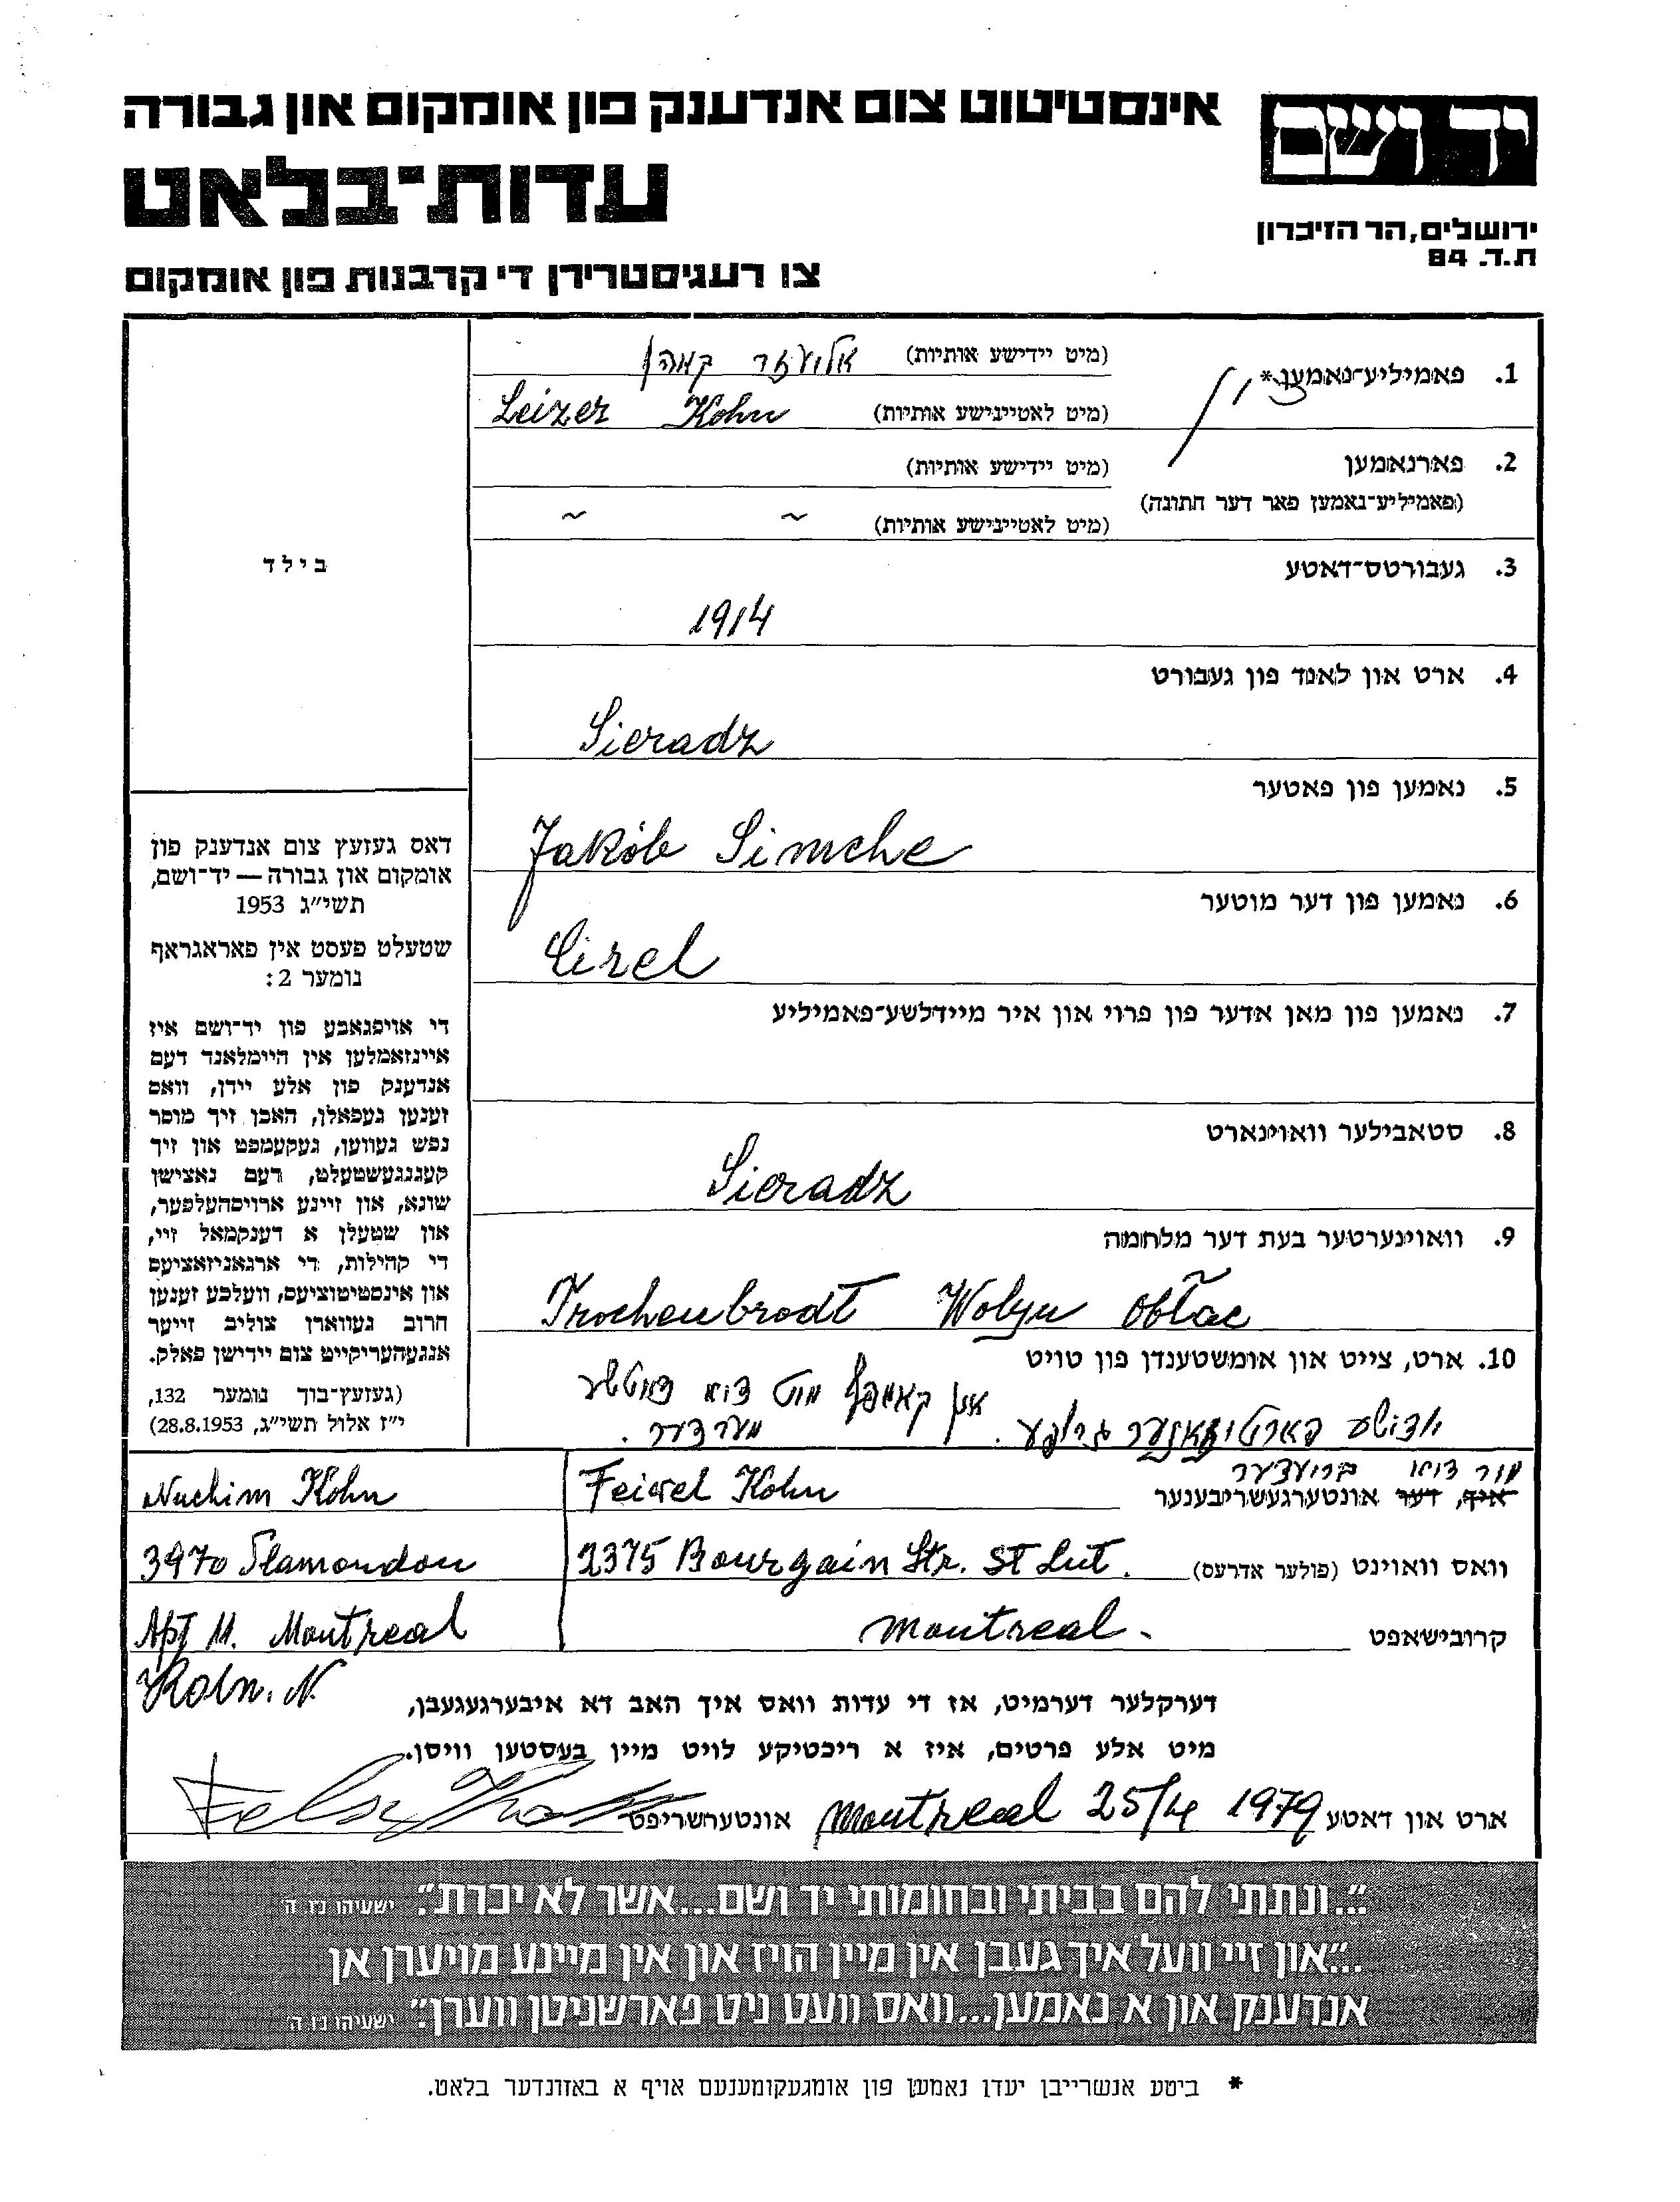 יד ושם
אינסטיטוט צום אנדענק פון אומקום און גבורה
עדות־בלאט
ירושלים, הר הזיכרון
ת.ד. 84
צו רעגיסטרירן די קרבנות פון אומקום
1. פאמיליע־נאמען*
(מיט יידישע אותיות) אליעזר קאהן
(מיט לאטיינישע אותיות) Leizer Kohn
2. פארנאמען (מיט יידישע אותיות)
(פאמיליע־נאמען פאר דער חתונה)
(מיט לאטיינישע אותיות) ~ ~
בילד
3. געבורטס־דאטע
1914
4. ארט און לאנד פון געבורט
Sieradz
5. נאמען פון פאטער
Jakób Simche
6. נאמען פון דער מוטער
Cirel
7. נאמען פון מאן אדער פון פרוי און איר מיידלשע־פאמיליע
8. סטאבילער וואוינארט
Sieradz
9. וואוינערטער בעת דער מלחמה
Trochenbrodt Wolyn obłac
10. ארט, צייט און אומשטענדן פון טויט
אין קאמפף מיט דיא דייטשע
מערדער.
יידישע פארטיזאנער גרופע.
דאס געזעץ צום אנדענק פון
אומקום און גבורה — יד־ושם,
תשי״ג 1953
שטעלט פעסט אין פאראגראף
נומער 2:
די אויפגאבע פון יד־ושם איז
איינזאמלען אין היימלאנד דעם
אנדענק פון אלע יידן, וואס
זענען געפאלן, האבן זיך מוסר
נפש געווען, געקעמפט און זיך
קעגנגעשטעלט, דעם נאצישן
שונא, און זיינע ארויסהעלפער,
און שטעלן א דענקמאל זיי,
די קהילות, די ארגאניזאציעס
און אינסטיטוציעס, וועלכע זענען
חרוב געווארן צוליב זייער
אנגעהעריקייט צום יידישן פאלק.
(געזעץ־בוך נומער 132,
י״ז אלול תשי״ג, 28.8.1953)
מיר דיא ברועדער
איך, דער אונטערגעשריבענער Feiwel Kohn Nuchim Kohn
וואס וואוינט (פולער אדרעס) 2375 Bourgain Str. St Lut. 3970 Plamondon
קרובישאפט Montreal - Apt 11. Montreal
Kohn. N.
דערקלער דערמיט, אז די עדות וואס איך האב דא איבערגעגעבן,
מיט אלע פרטים, איז א ריכטיקע לויט מיין בעסטען וויסן.
ארט און דאטע Montreal 25/4 1979 אונטערשריפט
"...ונתתי להם בביתי ובחומותי יד ושם...אשר לא יכרת". ישעיהו נ״ו ה׳
"...און זיי וועל איך געבן אין מיין הויז און אין מיינע מויערן אן
אנדענק און א נאמען...וואס וועט ניט פארשניטן ווערן". ישעיהו נ״ו ה׳
* ביטע אנשרייבן יעדן נאמען פון אומגעקומענעם אויף א באזונדער בלאט.